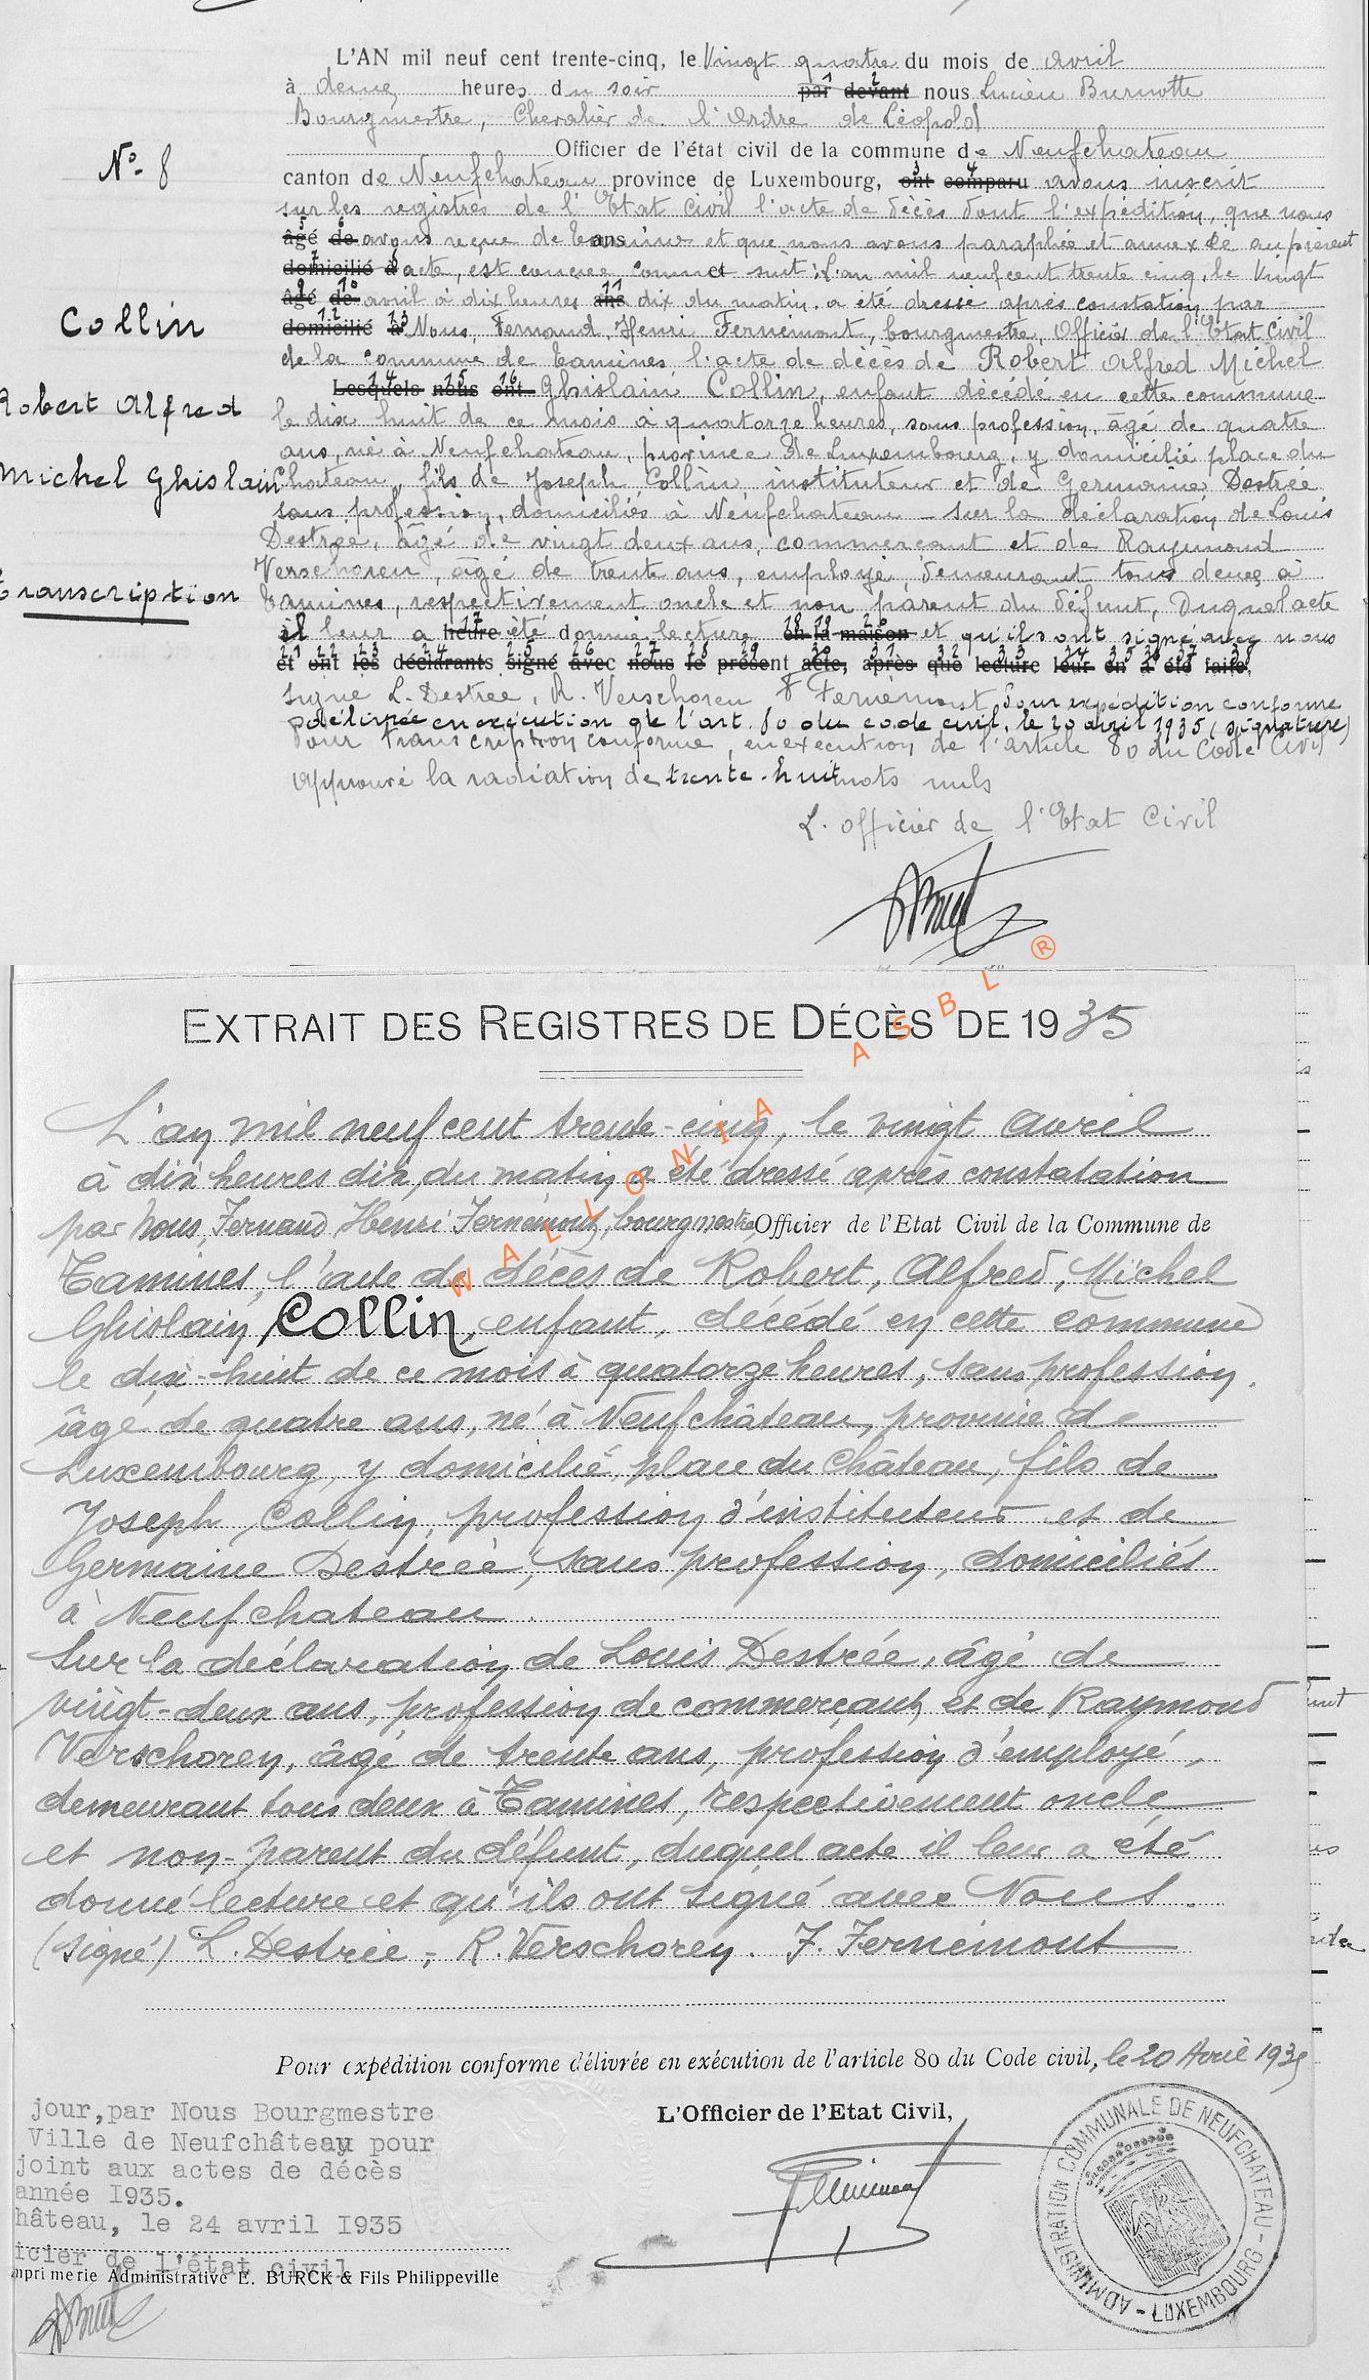 L'AN mil neuf cent trente-cinq, le Vingt quatre du mois de avril
à deux heures du soir par devant nous Lucien Burnotte
Bourgmestre, Chevalier de l'Ordre de Léopold
Officier de l'état civil de la commune de Neufchateau
N° 8
canton de Neufchateau province de Luxembourg, ont comparu avons inscrit
sur les registres de l'Etat Civil l'acte de décès dont l'expédition, que nous
âgé de avons reçue de Tamines et que nous avons paraphée et annexée au présent
domicilié à acte, est conçue comme suit: L'an mil neuf cent trente cinq, le Vingt
âgé de avril à dix heures ans dix du matin a été dressé après constation par
Collin
domicilié à Nous, Fernand, Henri Fernémont, bourgmestre, Officier de l'Etat Civil
de la commune de Tamines l'acte de décès de Robert Alfred Michel
Lesquels nous ont Ghislain Collin, enfant décédé en cette commune
Robert Alfred
le dix huit de ce mois à quatorze heures, sans profession, âgé de quatre
ans, né à Neufchateau, province de Luxembourg, y domicilié place du
Michel Ghislain
Chateau, fils de Joseph Collin, instituteur et de Germaine Destrée
sans profession, domiciliés à Neufchateau - sur la déclaration de Louis
Destrée, âgé de vingt deux ans, commerçant et de Raymond
Verschoren, âgé de trente ans, employé, demeurant tous deux à
Transcription
Tamines, respectivement oncle et non parent du défunt, Duquel acte
il leur a heure été donné lecture en la maison et qu'ils ont signé avec nous
et ont les déclarants signé avec nous le présent acte, après que lecture leur en a été faite.
Signé L. Destrée, R. Verschoren F Fernémont Pour expédition conforme
délivrée en exécution de l'art. 80 du code civil, le 20 avril 1935 (signature)
Pour transcription conforme, en exécution de l'article 80 du Code Civil
Approuvé la radiation de trente-huit mots nuls
L'officier de l'Etat Civil
WALLONIA ASBL ®
EXTRAIT DES REGISTRES DE DÉCÈS DE 1935
L'an mil neuf cent trente-cinq, le vingt avril
à dix heures dix du matin a été dressé après constatation
par Nous, Fernand Henri Fernémont, bourgmestre, Officier de l'Etat Civil de la Commune de
Tamines, l'acte de décès de Robert, Alfred, Michel
Ghislain, Collin, enfant, décédé en cette commune
le dix-huit de ce mois à quatorze heures, sans profession,
âgé de quatre ans, né à Neufchâteau, province de
Luxembourg, y domicilié, place du Château, fils de
Joseph Collin, profession d'instituteur et de
Germaine Destrée, sans profession, domiciliés
à Neufchateau.
Sur la déclaration de Louis Destrée, âgé de
vingt-deux ans, profession de commerçant, et de Raymond
Verschoren, âgé de trente ans, profession d'employé,
demeurant tous deux à Tamines, respectivement oncle
et non-parent du défunt, duquel acte il leur a été
donné lecture et qu'ils ont signé avec Nous.
(signé) L. Destrée, R. Verschoren. F. Fernémont
Pour expédition conforme délivrée en exécution de l'article 80 du Code civil, le 20 Avril 1935
jour, par Nous Bourgmestre
Ville de Neufchâteau pour
joint aux actes de décès
année 1935.
hâteau, le 24 avril 1935
icier de l'état civil
mprimerie Administrative E. BURCK & Fils Philippeville
L'Officier de l'Etat Civil,
ADMINISTRATION COMMUNALE DE NEUFCHATEAU - LUXEMBOURG -